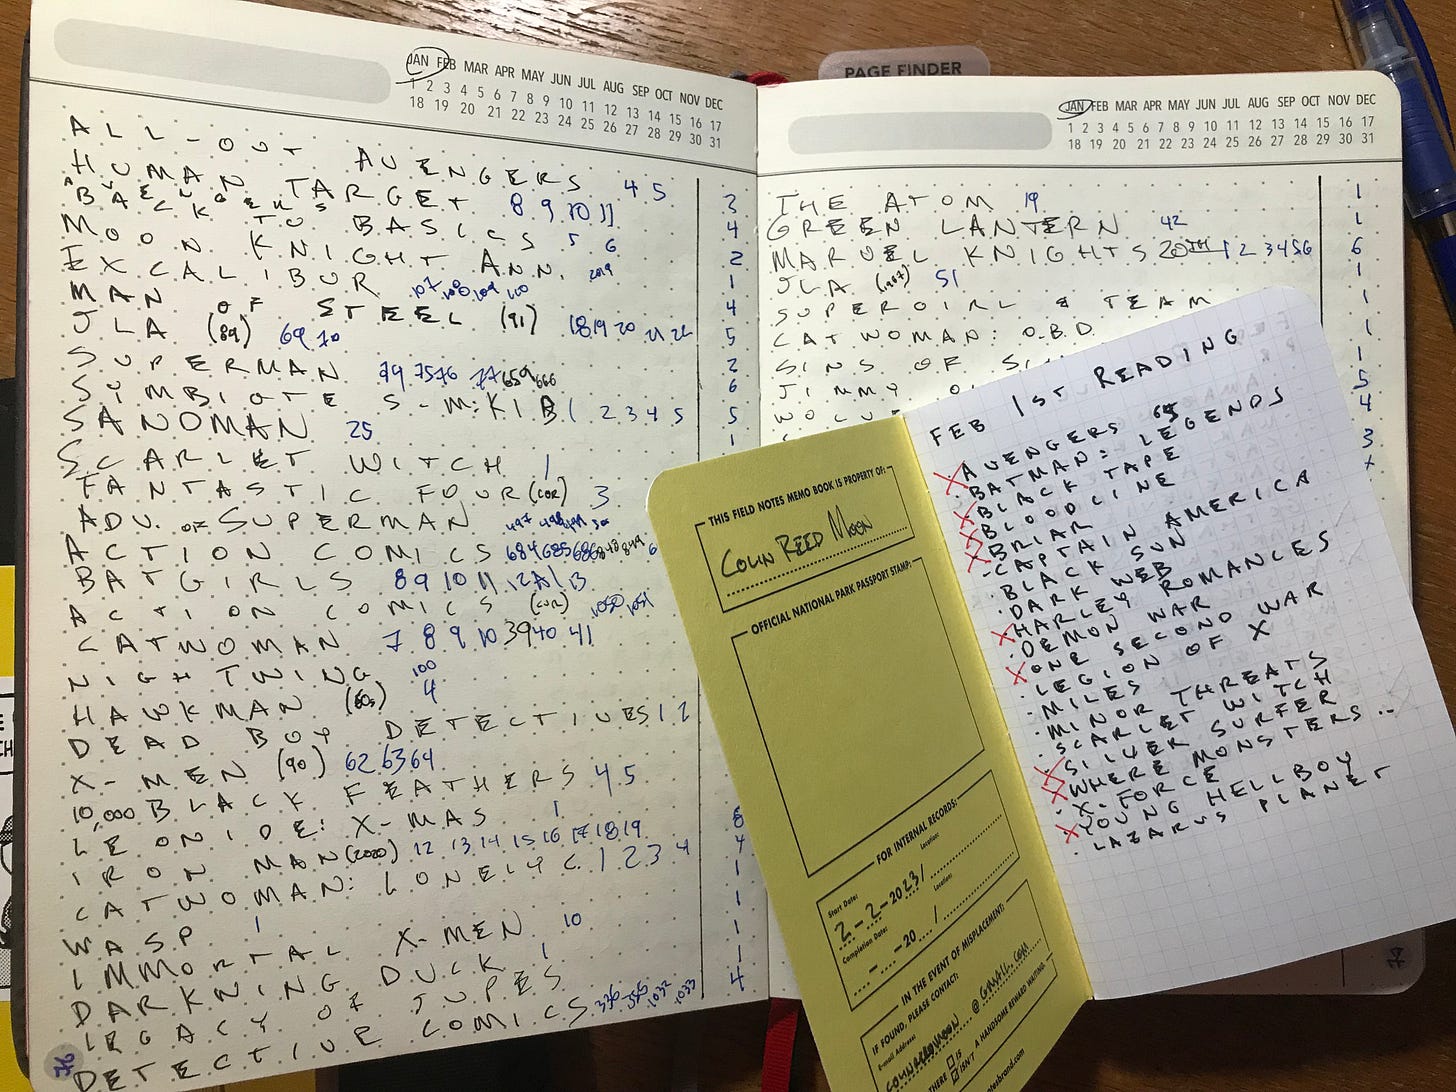 JAN FEB MAR APR MAY JUN JUL AUG SEP OCT NOV DEC
1 2 3 4 5 6 7 8 9 10 11 12 13 14 15 16 17
18 19 20 21 22 23 24 25 26 27 28 29 30 31
ALL-OUT AVENGERS 4 5
HUMAN TARGET 8 9 10 11 3
BACK TO BASICS 5 6 4
MOON KNIGHT ANN. 2019 2
EXCALIBUR 107 108 109 100 1
MAN OF STEEL (91) 18 19 20 21 22 4
JLA (89) 69 70 5
SUPERMAN 2
SYMBIOTE S-M: KIB 1 2 3 4 5 6
SANDMAN 25 5
SCARLET WITCH 1 1
FANTASTIC FOUR (COR) 3
ADV. OF SUPERMAN
ACTION COMICS 684 685 686
BATGIRLS 8 9 10 11 12 A/ 13
ACTION COMICS (CUR) 1050 1051
CATWOMAN 7 8 9 10 39 40 41
NIGHTWING 100
HAWKMAN (80s) 4
DEAD BOY DETECTIVES 1 2
X-MEN (90) 62 63 64
10,000 BLACK FEATHERS 4 5
LEONIDE: X-MAS 1
IRON MAN (2020) 12 13 14 15 16 17 18 19 8
CATWOMAN: LONELY C. 1 2 3 4 4
WASP 1 1
IMMORTAL X-MEN 10 1
DARKNING DUCK 1 1
LEGACY OF SUPES 1
DETECTIVE COMICS 4
76
PAGE FINDER
JAN FEB MAR APR MAY JUN JUL AUG SEP OCT NOV DEC
1 2 3 4 5 6 7 8 9 10 11 12 13 14 15 16 17
18 19 20 21 22 23 24 25 26 27 28 29 30 31
THE ATOM 19 1
GREEN LANTERN 42 1
MARVEL KNIGHTS 20TH 1 2 3 4 5 6 6
JLA (1987) 51 1
SUPERGIRL & TEAM 1
CATWOMAN: O.B.D. 1
SINS OF 1
JIMMY 5
4
3
THIS FIELD NOTES MEMO BOOK IS PROPERTY OF:
COLIN REED MOON
OFFICIAL NATIONAL PARK PASSPORT STAMP:
FOR INTERNAL RECORDS:
Start Date: Location:
2-2-2023/
Completion Date: Location:
- - 20 /
IN THE EVENT OF MISPLACEMENT:
IF FOUND, PLEASE CONTACT:
E-mail Address:
@GMAIL.COM
THERE IS
ISN'T A HANDSOME REWARD WAITING.
FEB 1ST READING
X AVENGERS
BATMAN: LEGENDS
X BLACK TAPE
X BLOODLINE
X BRIAR
- CAPTAIN AMERICA
. BLACK SUN
. DARK WEB
X HARLEY ROMANCES
. DEMON WAR
X ONE SECOND WAR
. LEGION OF X
. MILES
. MINOR THREATS
. SCARLET WITCH
X SILVER SURFER
X WHERE MONSTERS..
. X-FORCE
X YOUNG HELLBOY
. LAZARUS PLANET